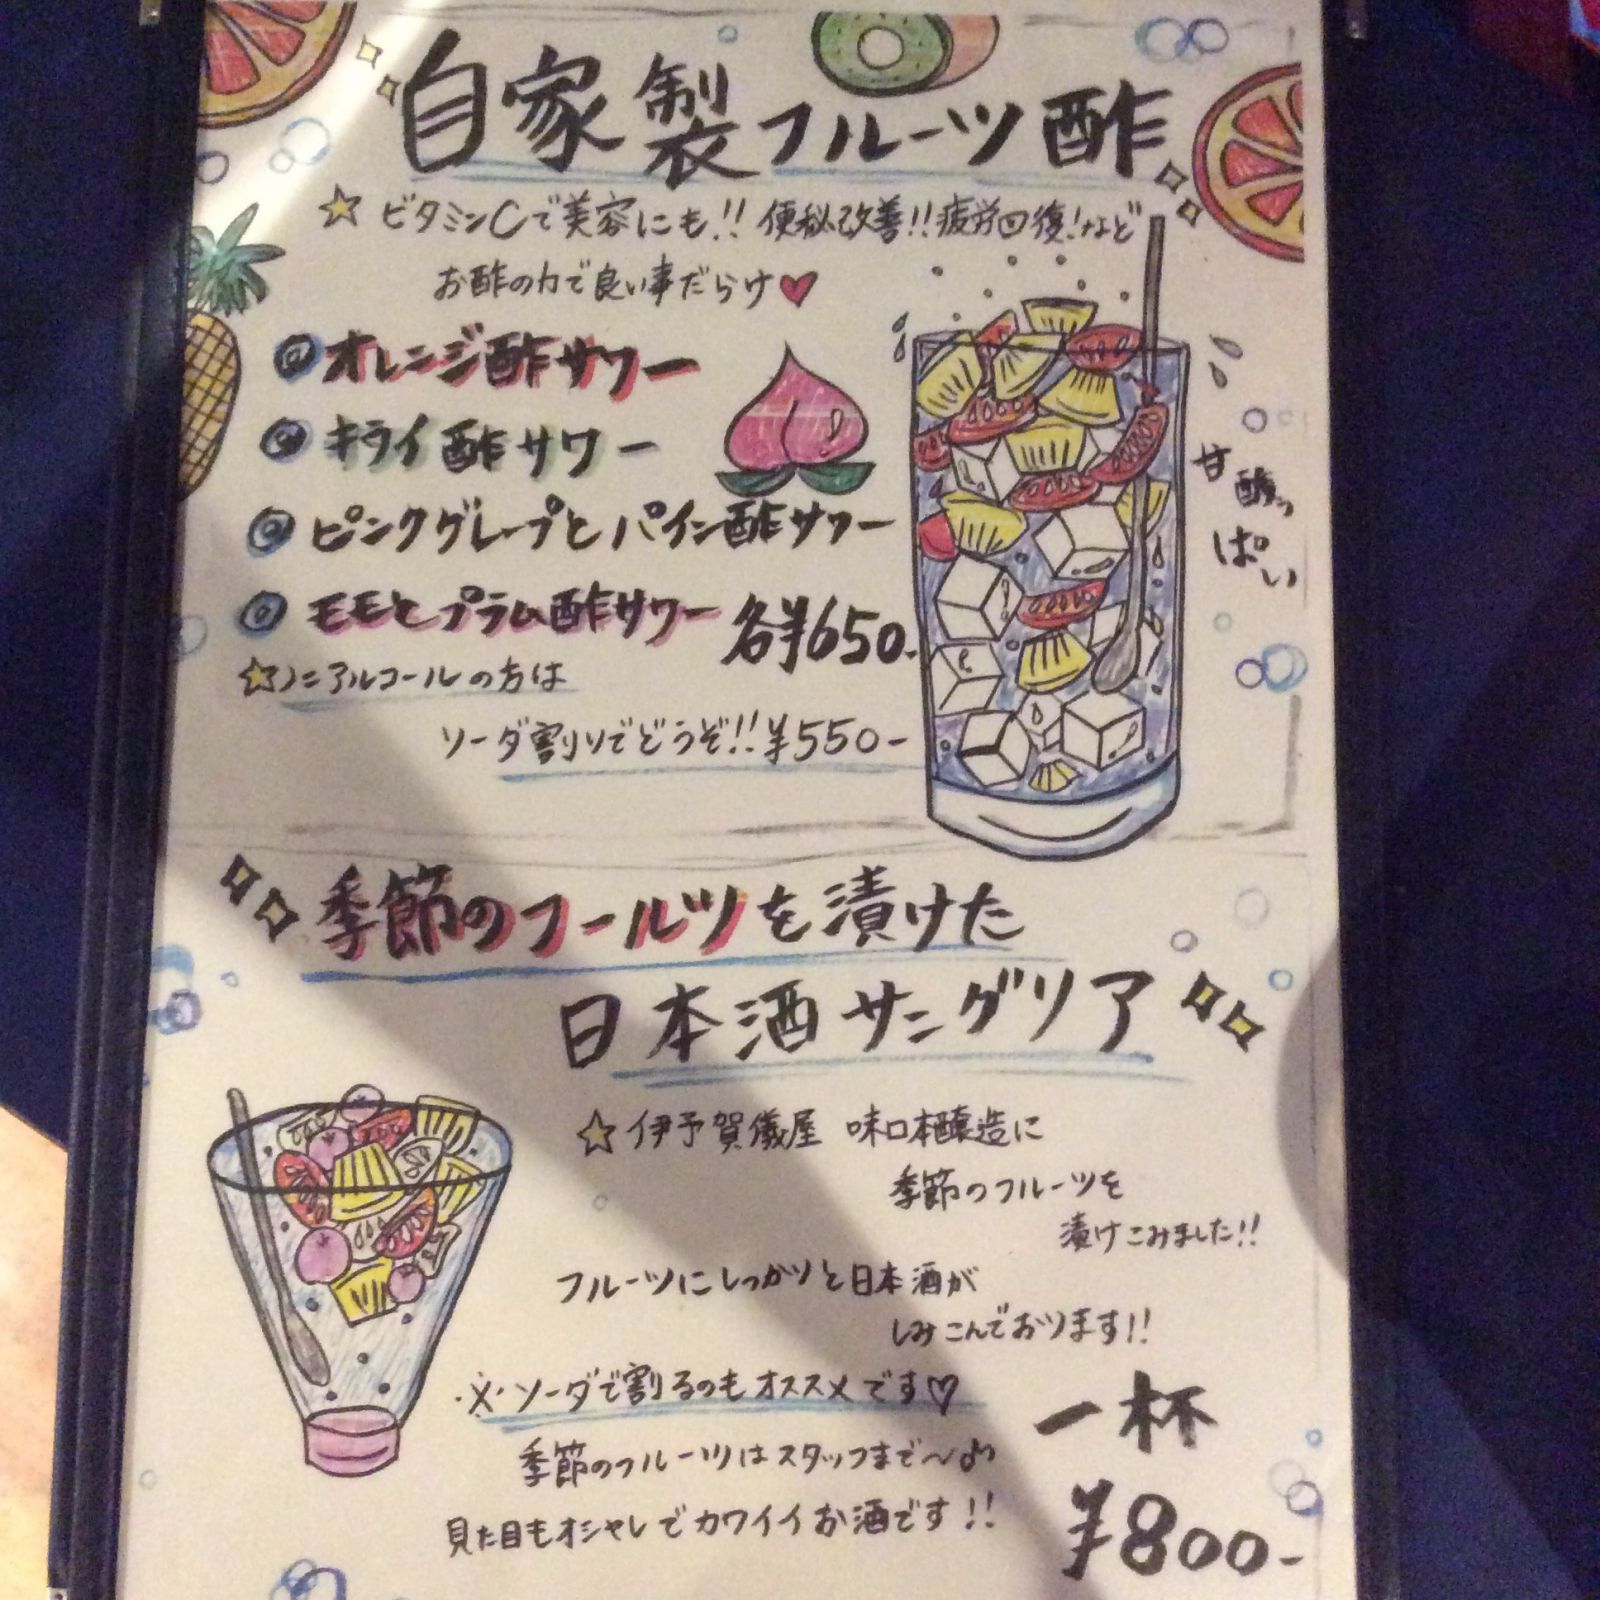 自家製フルーツ酢
☆ビタミンCで美容にも!!便秘改善!!疲労回復!など
お酢の力で良い事だらけ♥
◎オレンジ酢サワー
◎キウイ酢サワー
◎ピンクグレープとパイン酢サワー
◎モモとプラム酢サワー 各¥650-
☆ノンアルコールの方は
ソーダ割りでどうぞ!!¥550-
甘酸っぱい
季節のフールツを漬けた
日本酒サングリア
☆伊予賀儀屋 味口本醸造に
季節のフルーツを
漬けこみました!!
フルーツにしっかりと日本酒が
しみこんでおります!!
※ソーダで割るのもオススメです♡
季節のフルーツはスタッフまで〜♪
見た目もオシャレでカワイイお酒です!!
一杯
¥800-